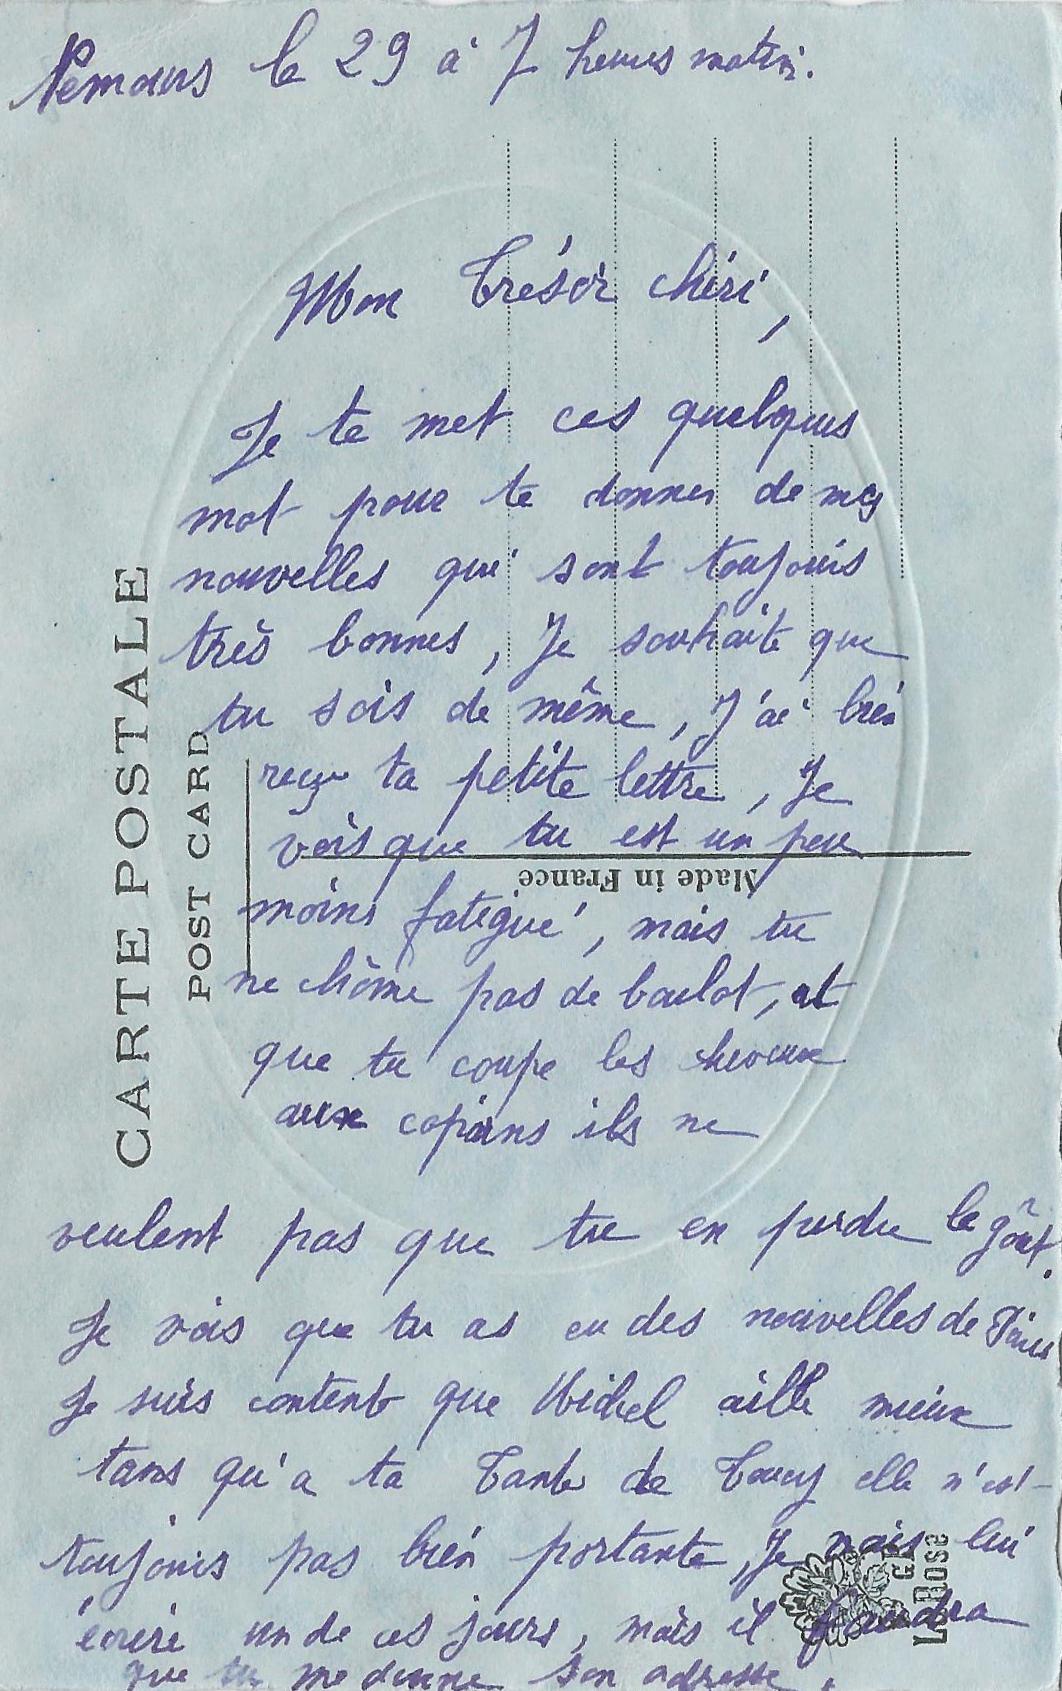 Nemours le 29 à 7 heures matin.
Mon Trésor chéri,
Je te met ces quelques
mot pour te donner de mes
nouvelles qui sont toujours
très bonnes, Je souhaite que
tu sois de même, J'ai bien
reçu ta petite lettre, Je
vois que tu est un peu
moins fatigué, mais tu
ne chôme pas de boulot, et
que tu coupe les cheveux
aux copains ils ne
veulent pas que tu en perdre le goût.
Je vois que tu as eu des nouvelles de
Je suis content que Michel aille mieux
tans qu'a ta Tante de Toucy elle n'est
toujours pas bien portante, Je vais lui
écrire un de ces jours, mais il faudra
que tu me donne son adresse.
CARTE POSTALE
POST CARD
Made in France
La Rose